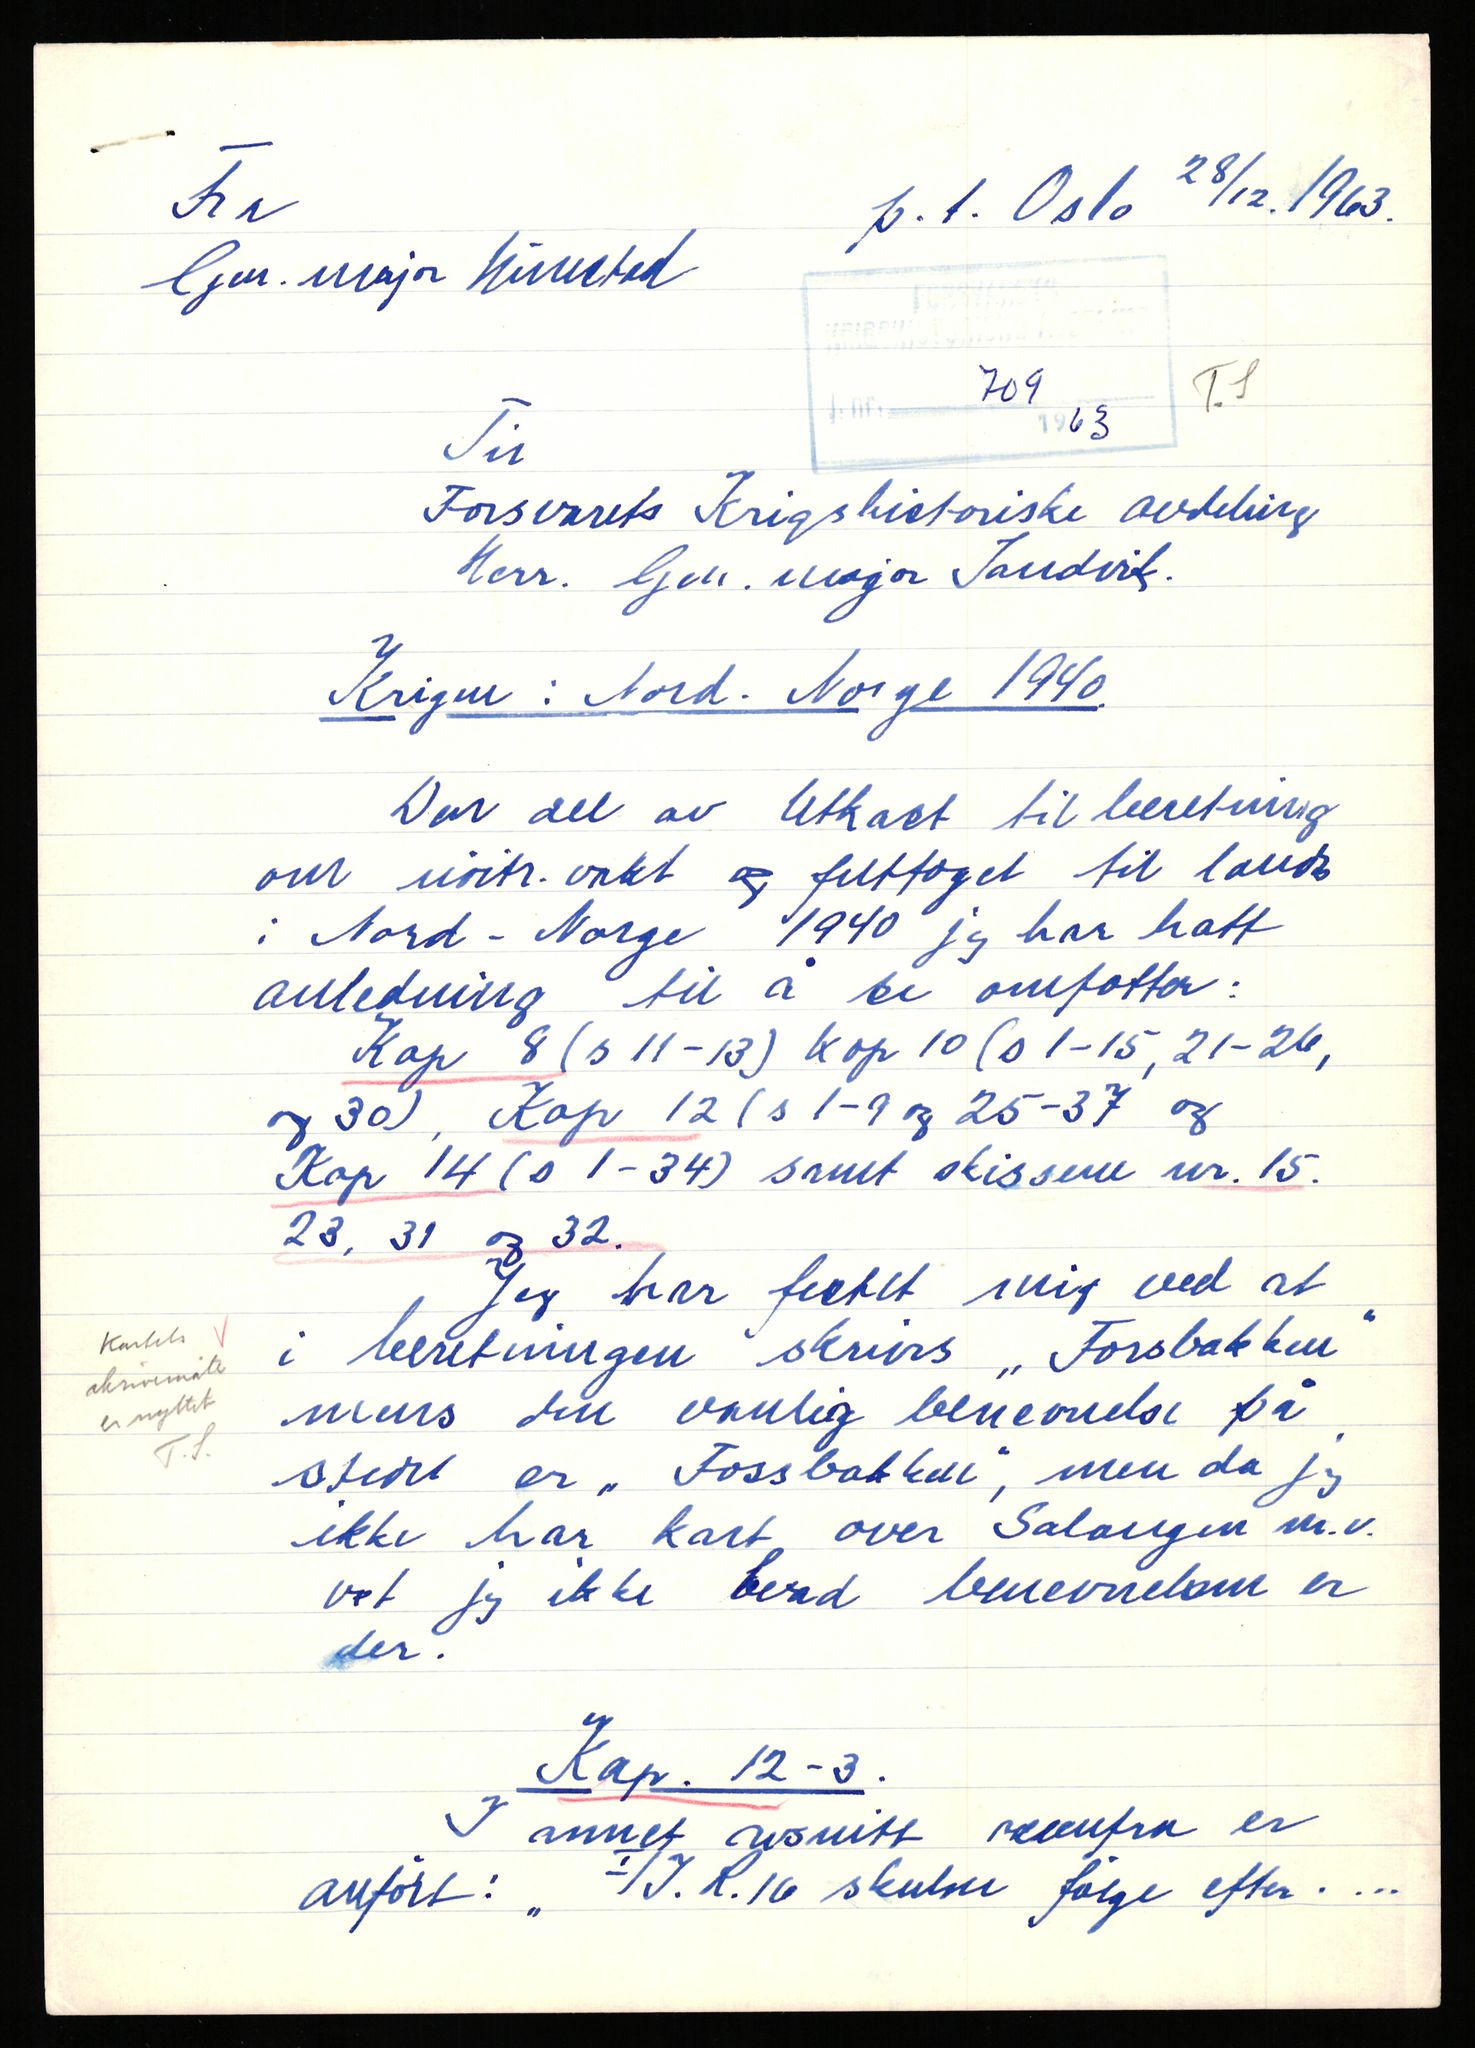 Fra
Gen. major Hunstad
p. t. Oslo 28/12. 1963.
J. nr. 709
1963
T.S
Til
Forsvarets Krigshistoriske avdeling
Herr. Gen. major Sandvik.
Krigen i Nord-Norge 1940.
Den del av Utkast til beretning
om nöitr. vakt og felttoget til lands
i Nord-Norge 1940 jeg har hatt
anledning til å se omfatter:
Kap 8 (s 11-13) kap 10 (s 1-15, 21-26,
og 30), Kap 12 (s 1-9 og 25-37 og
Kap 14 (s 1-34) samt skissene nr. 15.
23, 31 og 32.
Jeg har festet mig ved at
i beretningen skrives „Forsbakken"
mens den vanlig benevnelse på
stedet er „Fossbakken", men da jeg
ikke har kart over Salangen m.v.
vet jeg ikke hvad benevnelsen er
der.
Kartets
skrivemåte
er nyttet
T.S.
Kap. 12-3.
I annet avsnitt ovenfra er
anfört: „I/J.R.16 skulde følge efter....